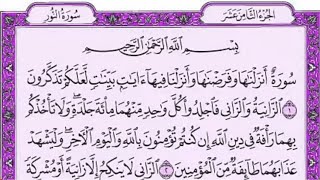 الجزء الثامن عشر
سورة النور
بِسْمِ اللَّهِ الرَّحْمَٰنِ الرَّحِيمِ
سُورَةٌ أَنزَلْنَاهَا وَفَرَضْنَاهَا وَأَنزَلْنَا فِيهَا آيَاتٍ بَيِّنَاتٍ لَّعَلَّكُمْ تَذَكَّرُونَ
١ الزَّانِيَةُ وَالزَّانِي فَاجْلِدُوا كُلَّ وَاحِدٍ مِّنْهُمَا مِائَةَ جَلْدَةٍ ۖ وَلَا تَأْخُذْكُم
بِهِمَا رَأْفَةٌ فِي دِينِ اللَّهِ إِن كُنتُمْ تُؤْمِنُونَ بِاللَّهِ وَالْيَوْمِ الْآخِرِ ۖ وَلْيَشْهَدْ
عَذَابَهُمَا طَائِفَةٌ مِّنَ الْمُؤْمِنِينَ ٢ الزَّانِي لَا يَنكِحُ إِلَّا زَانِيَةً أَوْ مُشْرِكَةً